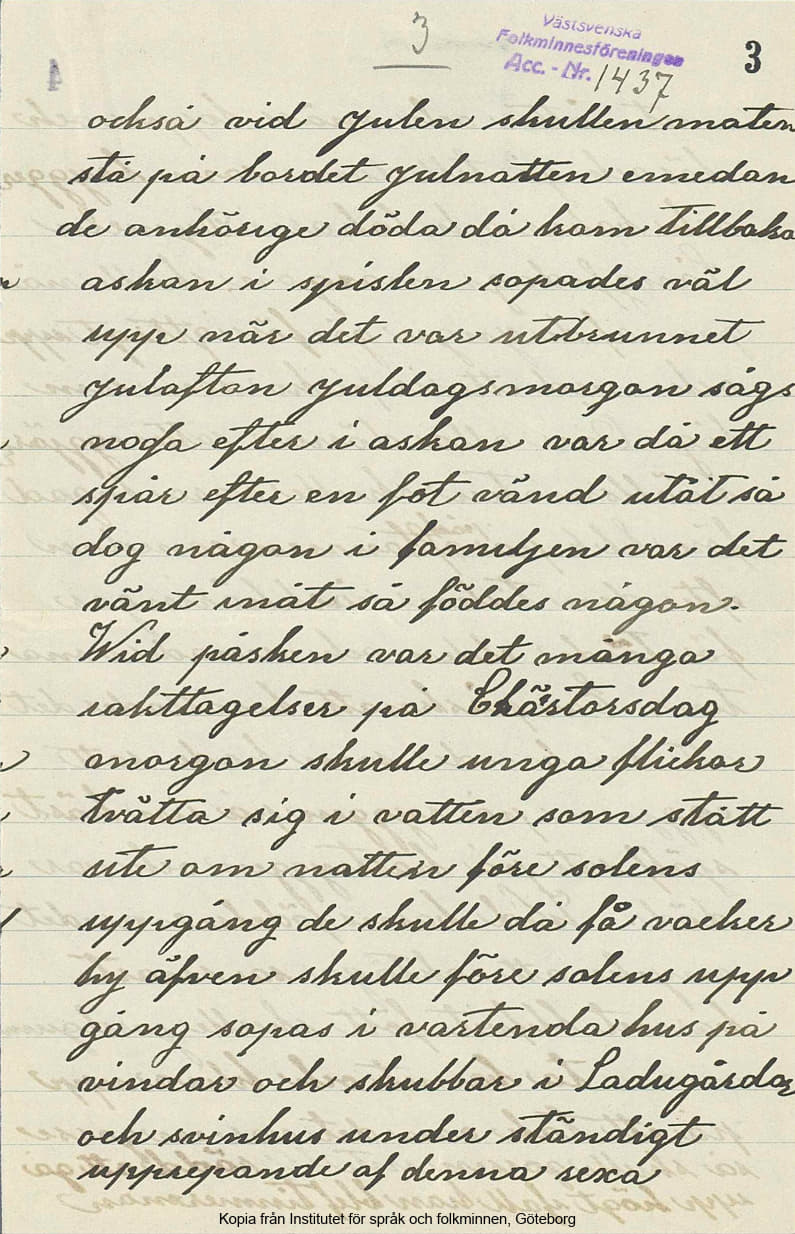 3
Västsvenska
Folkminnesföreningen
Acc. - Nr. 1437
3
också vid Julen skullen maten
stå på bordet Julnatten emedan
de anhörige döda då kom tillbaka
askan i spislen sopades väl
upp när det var utbrunnet
Julafton Juldagsmorgon sågs
noga efter i askan var då ett
spår efter en fot vänd utåt så
dog någon i familjen var det
vänt inåt så föddes någon.
Wid påsken var det många
iakttagelser på Chärstorsdag
morgon skulle unga flickor
tvätta sig i vatten som stått
ute om natten före solens
uppgång de skulle då få vacker
hy äfven skulle före solens upp
gång sopas i vartenda hus på
vindar och skubbar i Ladugårdar
och svinhus under ständigt
upprepande af denna rexa
Kopia från Institutet för språk och folkminnen, Göteborg